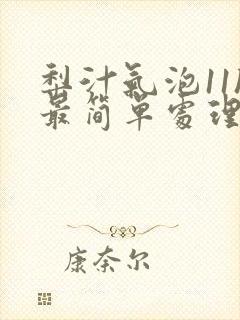 梨汁氣泡11
最简單處理
康奈尔